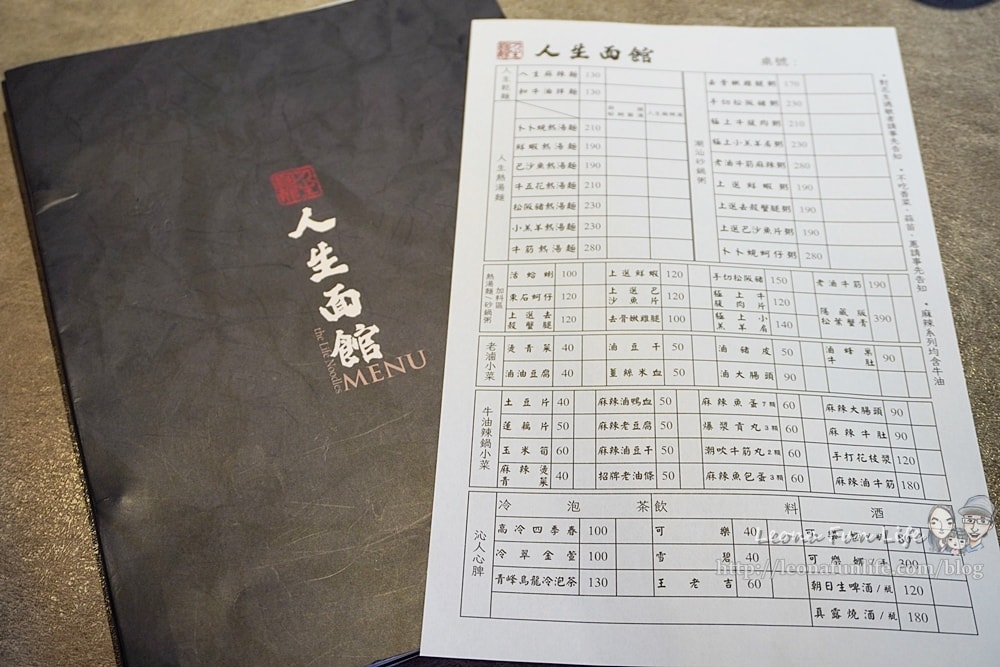 人生面館
the Life Noodles
MENU
人生面館
桌號：
人生乾麵
八薑麻辣麵 130
和牛油拌麵 130
人生熱湯麵
卜卜蜆熱湯麵 210
鮮蝦熱湯麵 190
巴沙魚熱湯麵 190
牛五花熱湯麵 210
松阪豬熱湯麵 230
小羔羊熱湯麵 230
牛筋熱湯麵 280
潮汕砂鍋粥
去骨嫩雞腿粥 170
手切松阪豬粥 230
極上牛腹肉粥 210
極上小羔羊肩粥 230
老滷牛筋麻辣粥 280
上選鮮蝦粥 190
上選去殼蟹腿粥 190
上選巴沙魚片粥 190
卜卜蜆蚵仔粥 280
熱湯麵/砂鍋粥 加料區
活蛤蜊 100 上選鮮蝦 120 手切松阪豬 150 老滷牛筋 190
東石蚵仔 120 上選巴沙魚片 120 極上牛腹肉片 120 隱藏版松葉蟹膏 390
上選去殼蟹腿 120 去骨嫩雞腿 100 極上小羔羊肩 140
老滷小菜
燙青菜 40 滷豆干 50 滷豬皮 50 滷蜂巢牛肚 90
滷油豆腐 40 薑絲米血 50 滷大腸頭 90
牛油辣鍋小菜
土豆片 40 麻辣滷鴨血 50 麻辣魚蛋7顆 60 麻辣大腸頭 90
蓮藕片 50 麻辣老豆腐 50 爆漿貢丸3顆 60 麻辣牛肚 90
玉米筍 60 麻辣滷豆干 50 潮吹牛筋丸2顆 60 手打花枝漿 120
麻辣燙青菜 40 招牌老油條 50 麻辣魚包蛋3顆 60 麻辣滷牛筋 180
沁人心脾
冷泡茶 飲料 酒
高冷四季春 100 可樂 40
冷翠金萱 100 雪碧 40
青峰烏龍冷泡茶 130 王老吉 60 朝日生啤酒/瓶 120
真露燒酒/瓶 180
•對花生過敏者請事先告知 •不吃香菜、蒜苗、蔥請事先告知 •麻辣系列均含牛油
Leona Fun Life
http://leonafunlife.com/blog